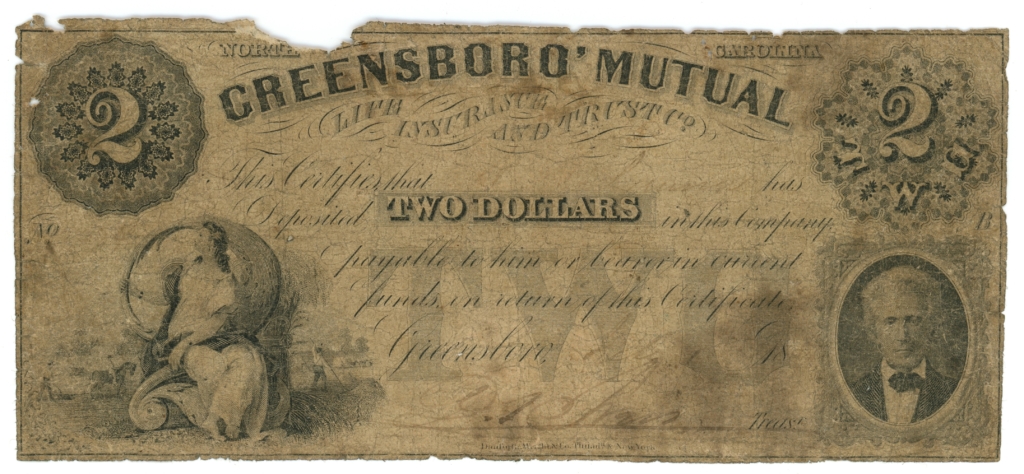 NORTH CAROLINA
2 GREENSBORO' MUTUAL 2
LIFE INSURANCE AND TRUST CO.
T W O
This Certifies that has
Deposited TWO DOLLARS in this Company,
No B
payable to him or bearer in current
funds, in return of this Certificate,
TWO
Greensboro, 18
Treasr.